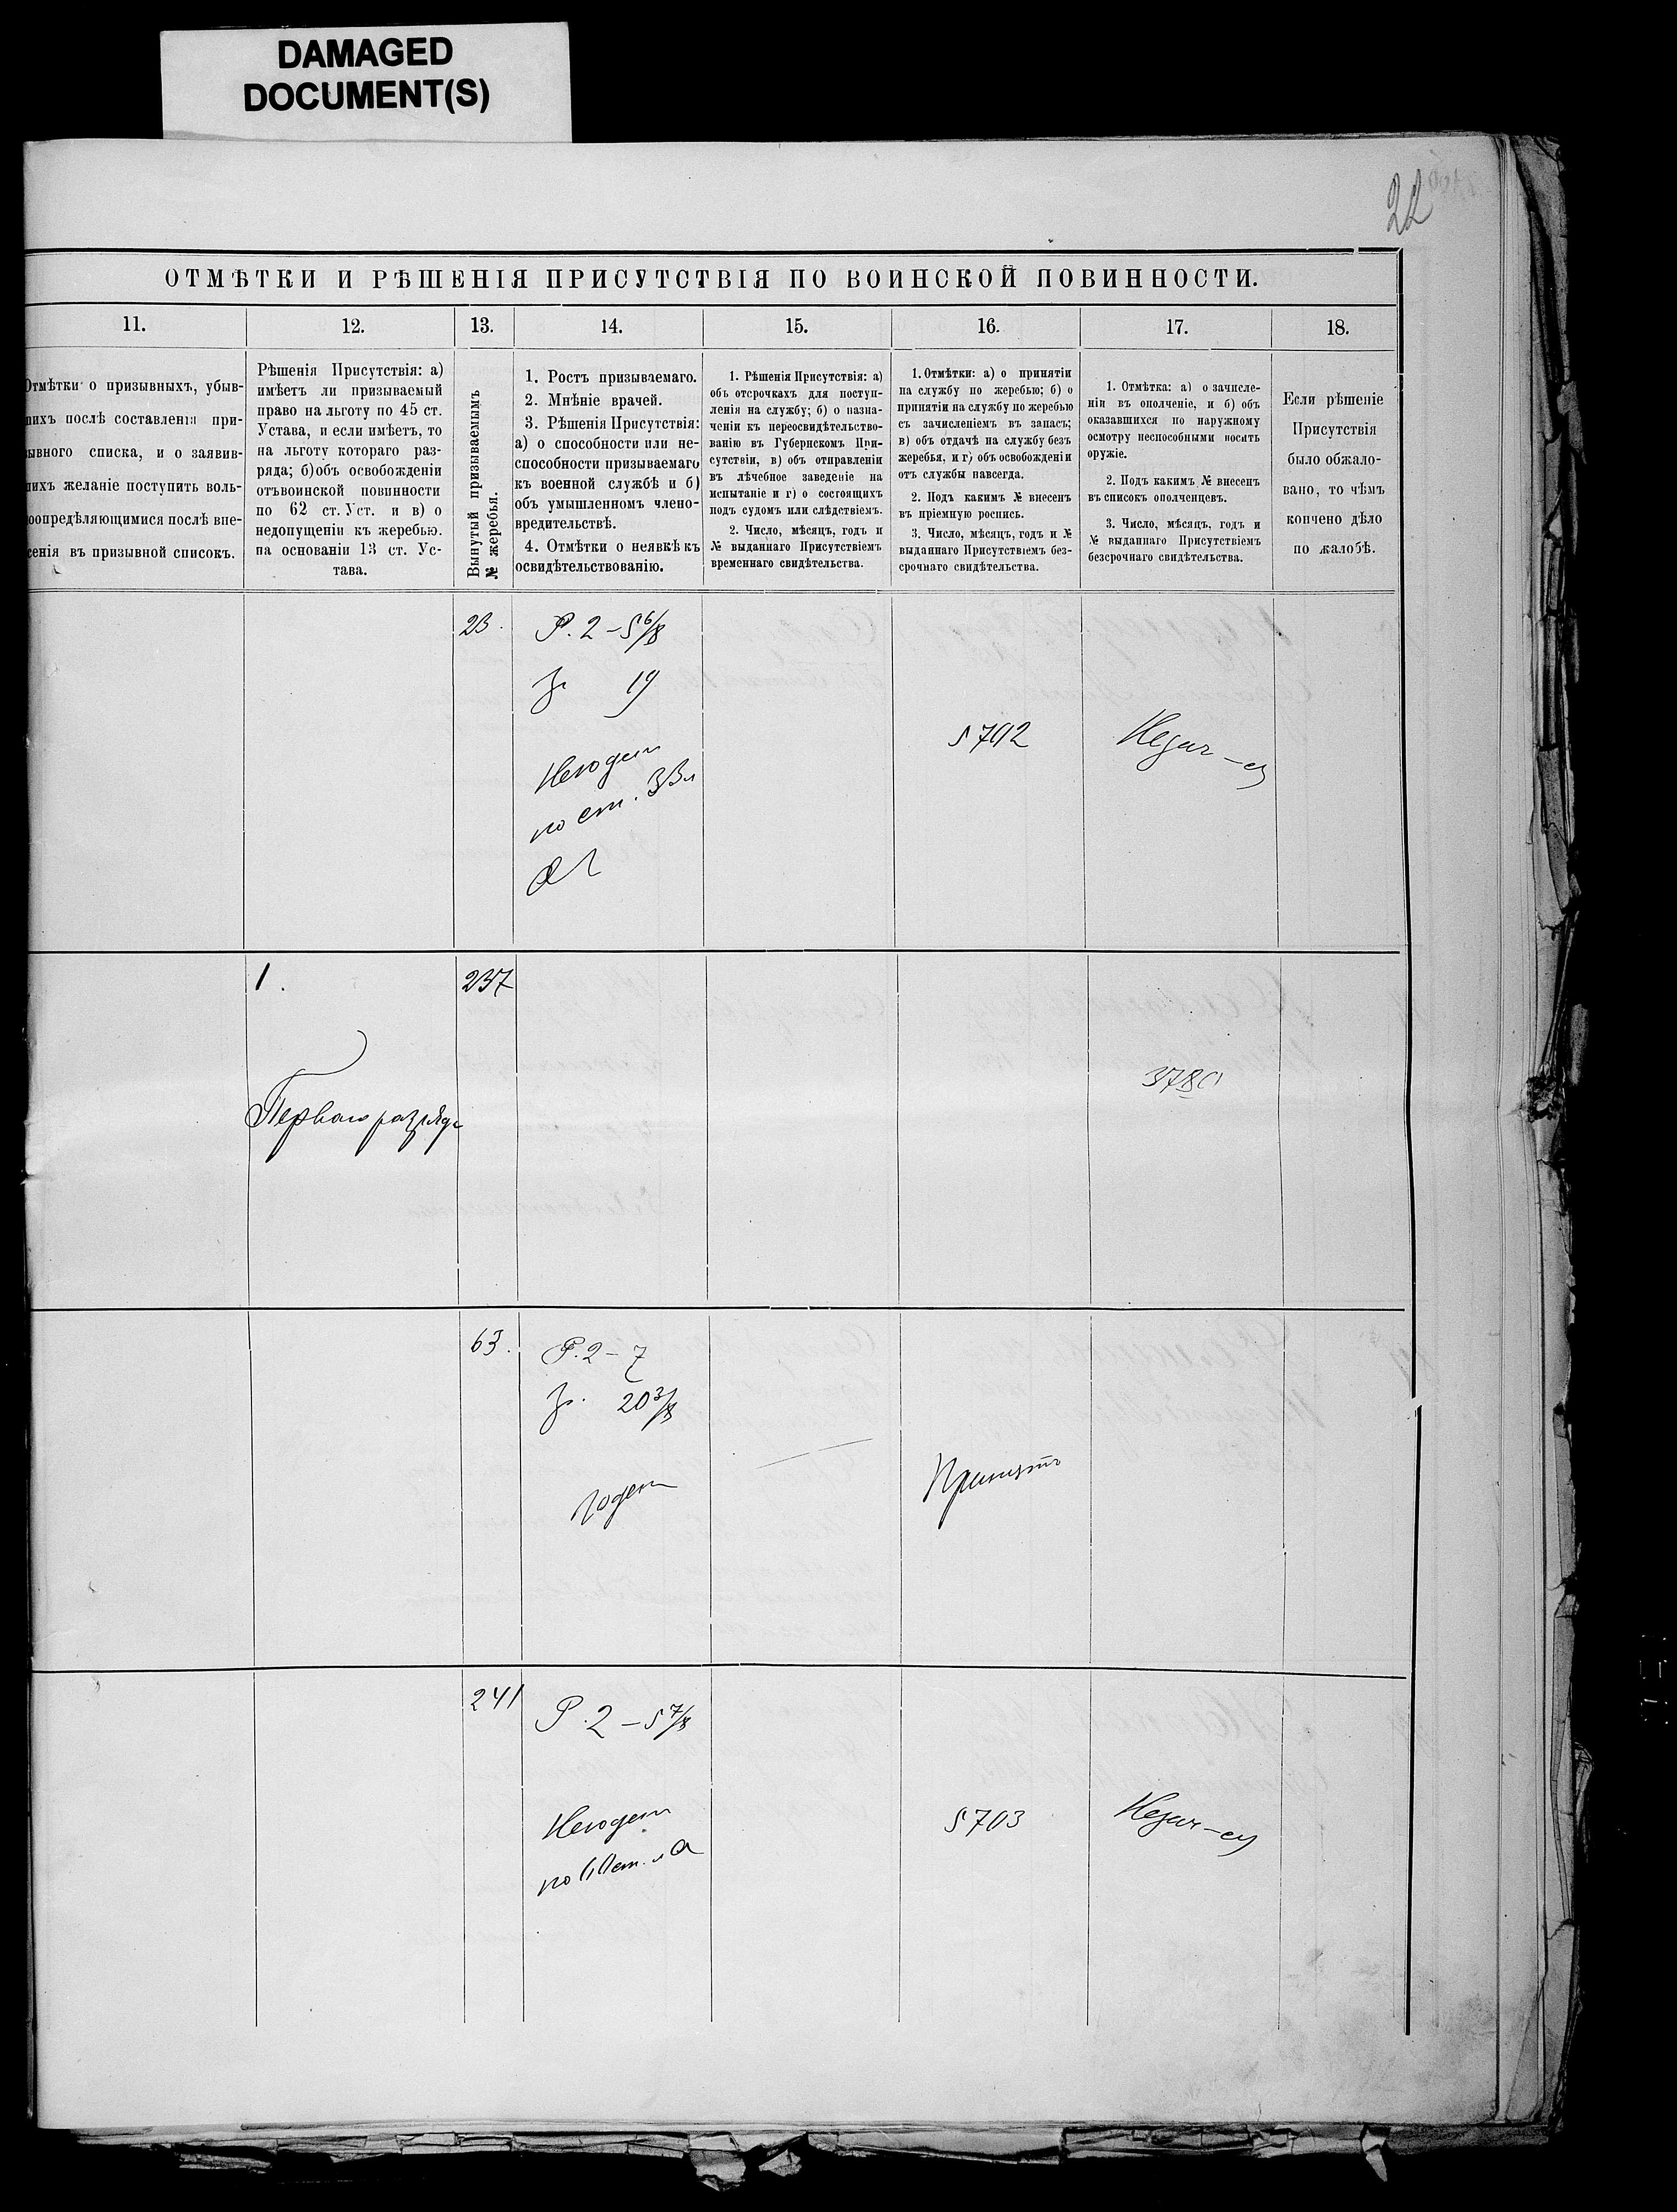 DAMAGED
DOCUMENT(S)
22
ОТМѢТКИ И РѢШЕНІЯ ПРИСУТСТВІЯ ПО ВОИНСКОЙ ПОВИННОСТИ.
11.
12.
13.
14.
15.
16.
17.
18.
Отмѣтки о призывныхъ, убыв-
шихъ послѣ составленія при-
зывного списка, и о заявив-
шихъ желаніе поступить воль-
ноопредѣляющимися послѣ вне-
сенія въ призывной списокъ.
Рѣшенія Присутствія: а)
имѣетъ ли призываемый
право на льготу по 45 ст.
Устава, и если имѣетъ, то
на льготу котораго раз-
ряда; б) объ освобожденіи
отъ воинской повинности
по 62 ст. Уст. и в) о
недопущеніи къ жеребью.
на основаніи 13 ст. Ус-
тава.
Вынутый призываемымъ
№ жеребья.
1. Ростъ призываемаго.
2. Мнѣніе врачей.
3. Рѣшенія Присутствія:
а) о способности или не-
способности призываемаго
къ военной службѣ и б)
объ умышленномъ члено-
вредительствѣ.
4. Отмѣтки о неявкѣ къ
освидѣтельствованію.
1. Рѣшенія Присутствія: а)
объ отсрочкахъ для поступ-
ленія на службу; б) о назна-
ченіи къ переосвидѣтельство-
ванію въ Губернскомъ При-
сутствіи, в) объ отправленіи
въ лѣчебное заведеніе на
испытаніе и г) о состоящихъ
подъ судомъ или слѣдствіемъ.
2. Число, мѣсяцъ, годъ и
№ выданнаго Присутствіемъ
временнаго свидѣтельства.
1. Отмѣтки: а) о принятіи
на службу по жеребью; б) о
принятіи на службу по жеребью
съ зачисленіемъ въ запасъ;
в) объ отдачѣ на службу безъ
жеребья, и г) объ освобожденіи
отъ службы навсегда.
2. Подъ какимъ № внесенъ
въ пріемную роспись.
3. Число, мѣсяцъ, годъ и №
выданнаго Присутствіемъ без-
срочнаго свидѣтельства.
1. Отмѣтка: а) о зачисле-
ніи въ ополченіе, и б) объ
оказавшихся по наружному
осмотру неспособными носить
оружіе.
2. Подъ какимъ № внесенъ
въ списокъ ополченцевъ.
3. Число, мѣсяцъ, годъ и
№ выданнаго Присутствіемъ
безсрочнаго свидѣтельства.
Если рѣшеніе
Присутствія
было обжало-
вано, то чѣмъ
кончено дѣло
по жалобѣ.
23.
Р. 2 – 5 6/8
19
Негоденъ
по ст. 33
5702
1.
237
Перваго разряда
63.
Р. 2 – 7
20 3/8
годенъ
Принятъ
241
Р. 2 – 5 7/8
Негоденъ
5703